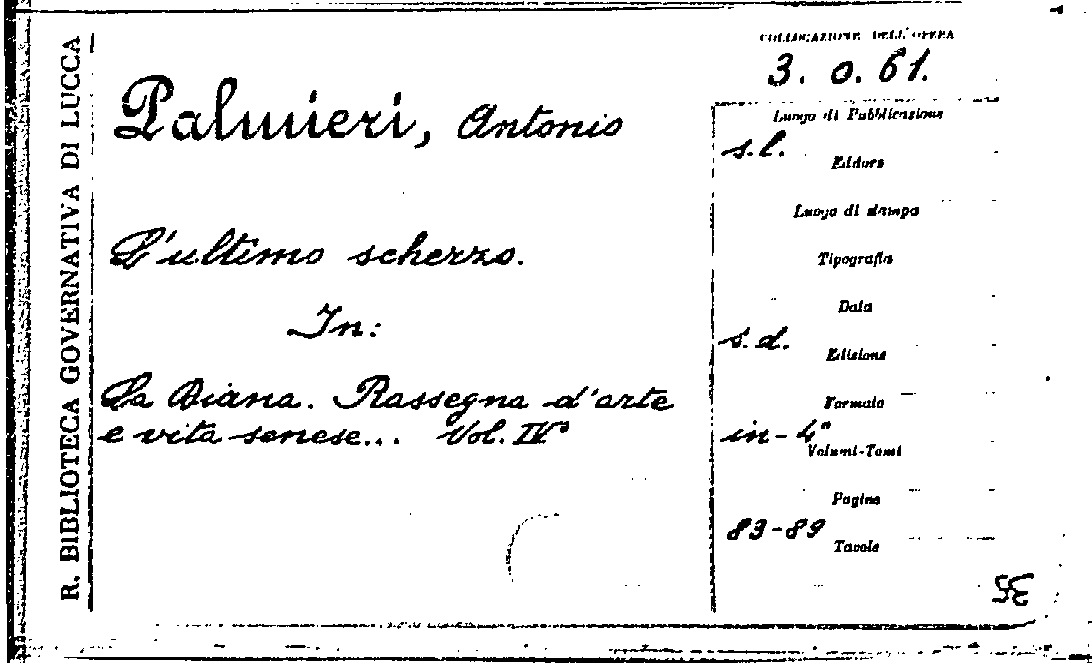 R. BIBLIOTECA GOVERNATIVA DI LUCCA
COLLOCAZIONE DELL'OPERA
3. o. 61.
Palmieri, Antonio
L'ultimo scherzo.
In:
La Diana. Rassegna d'arte
e vita senese... Vol. IV°
Luogo di Pubblicazione
s.l.
Editore
Luogo di stampa
Tipografia
Data
s.d.
Edizione
Formato
in-4°
Volumi-Tomi
Pagine
83-89
Tavole
35